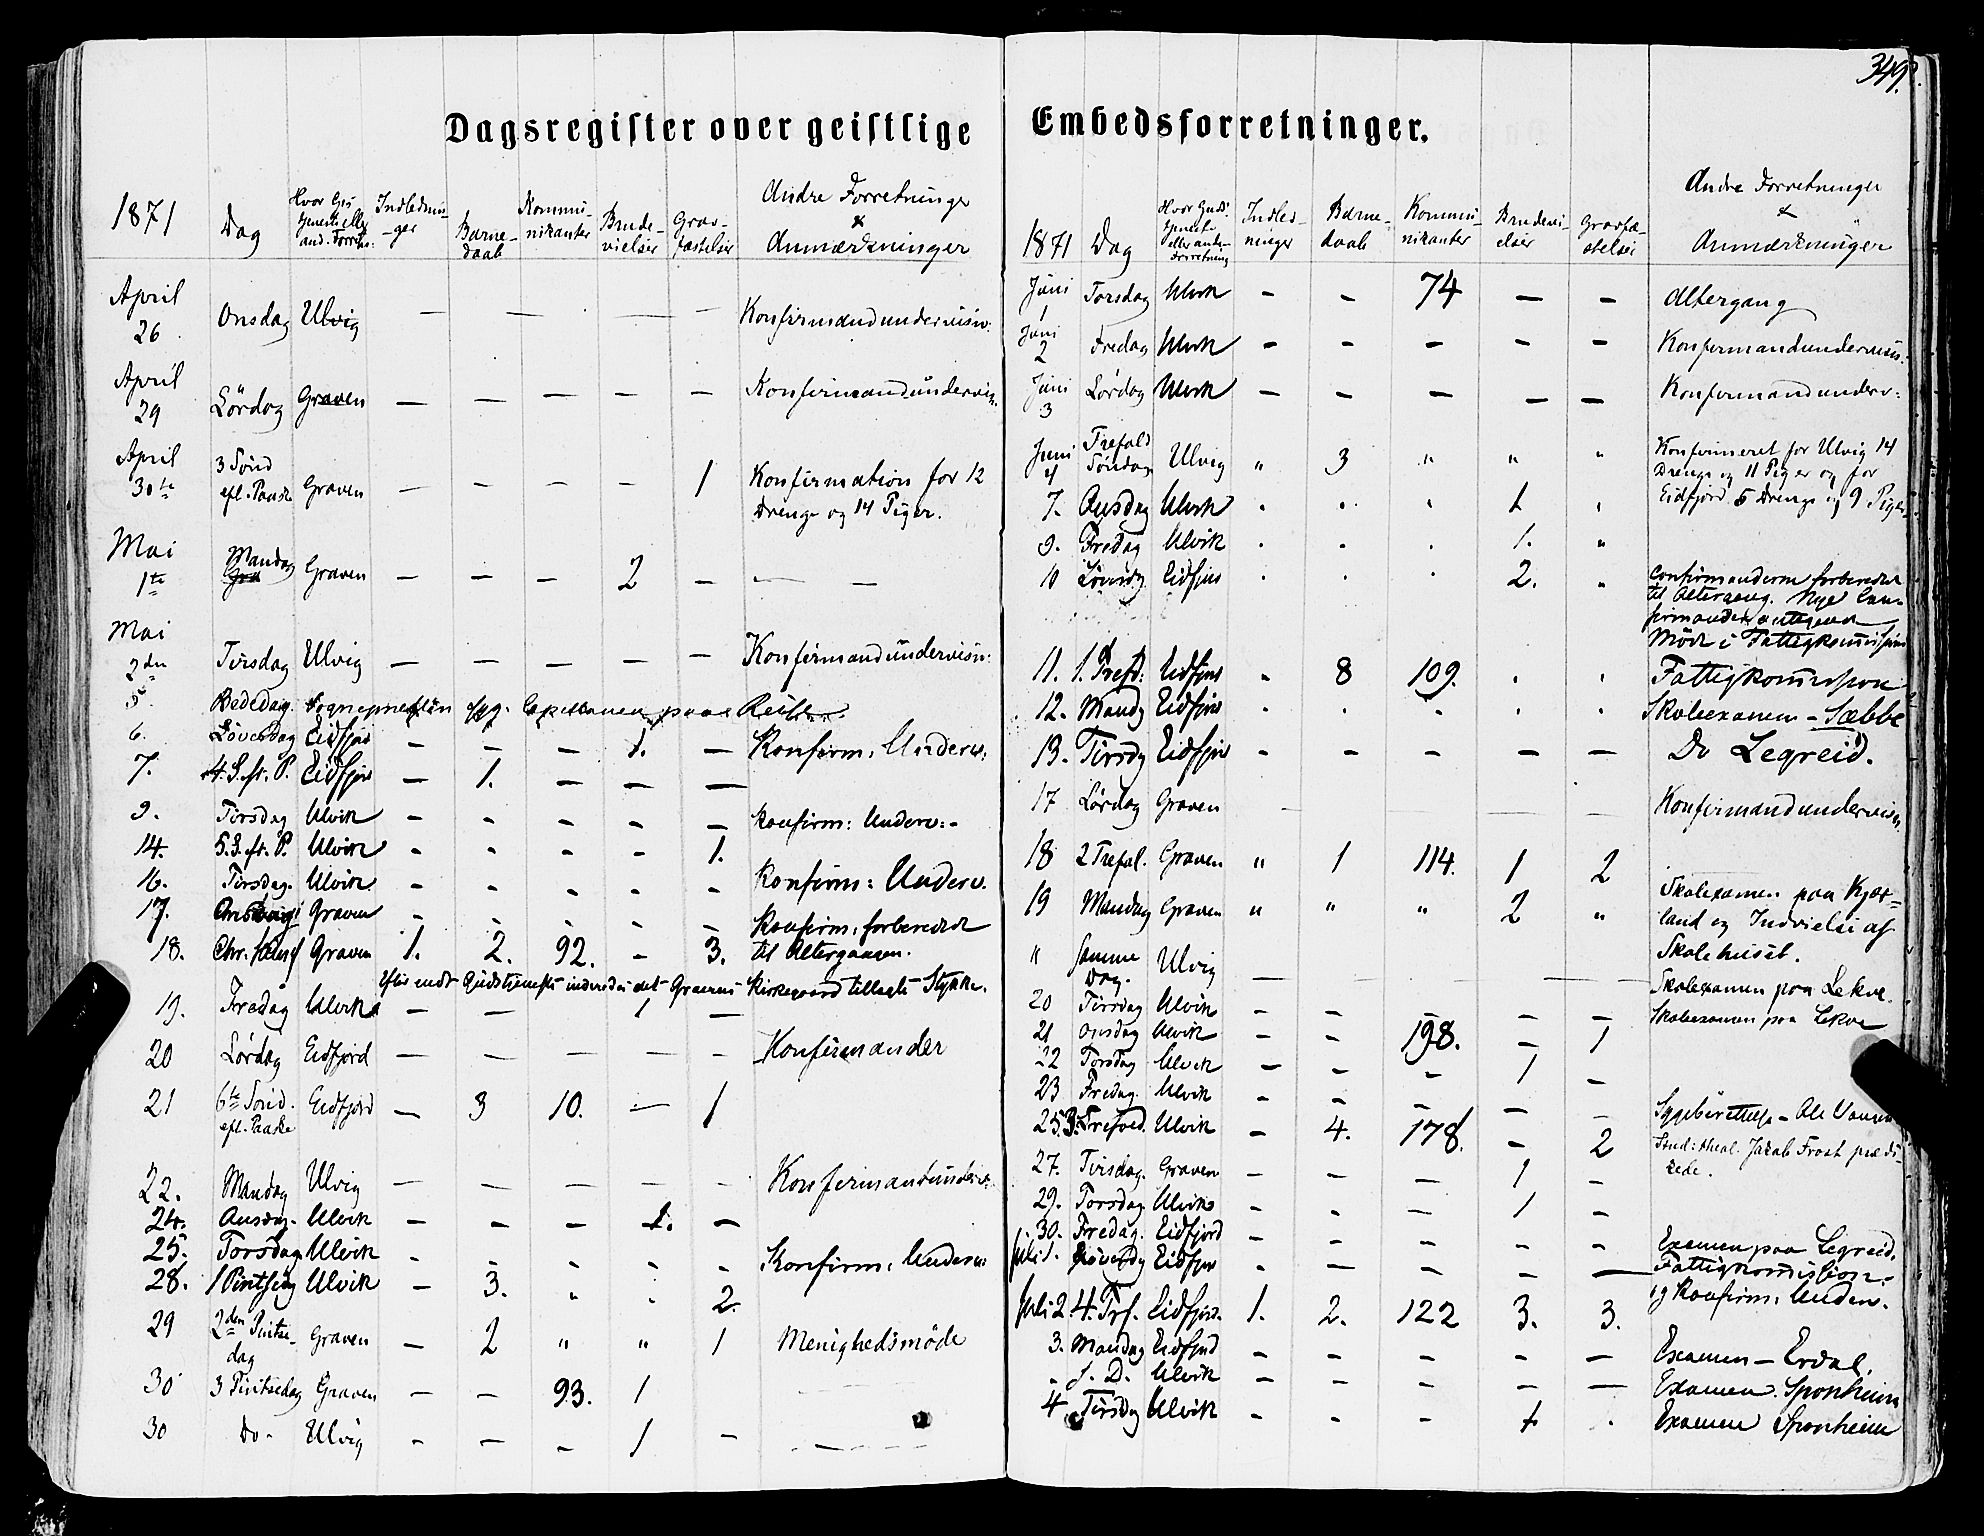 349.
Dagsregister over geistlige Embedsforretninger.
1871 Dag Hvor Gudstjeneste eller and. Forretn: Indledninger Barnedaab Kommunikanter Brudevielser Gravfæstelser Andre Forretninger & Anmærkninger
April 26 Onsdag Ulvig — — — — Konfirmandundervisn:
April 29 Lördag Graven — — — — — Konfirmandundervisn.
April 30te 3 Sönd eft. Paaske Graven — — — — 1 Konfirmation for 12
Drenge og 14 Piger.
Mai 1te Mandag Graven — — — 2 — — —
Mai 2den Tirsdag Ulvig — — — — — Konfirmandundervisn:
5. Bededag. Sognepresten syg. Capellanen paa Reiser.
6. Löverdag Eidfjord — — — 1. — Konfirm: Underv.
7. 4. S. ft. P. Eidfjord — 1. — — —
9. Tirsdag Ulvik - - - - - Konfirm: Underv:-
14. 5. S. ft. P. Ulvik - - - - 1.
16. Tirsdag. Ulvik - - - - - Konfirm: Underv.
17. Onsdag Graven - - - - - Konfirm. forberedt
18. Chr. Himf Graven 1. 2. 92. - 3. til Altergangen.
Efter endt Gudstjeneste indviedes det Gravens Kirkegaard tillagte Stykke.
19. Fredag Ulvik — — 1 —
20 Lördag Eidfjord — — — — - Konfirmander
21 6te Sönd. eft. Paaske Eidfjord — 3 10. — 1
22. Mandag Ulvig — — — — — Konfirmandunderv:
24. Onsdag. Ulvik - - - 1. -
25. Torsdag Ulvik - - - - - Konfirm: Underv
28. 1 Pintsedag Ulvik - 3. " . 2.
29 2den Pintsedag Graven - 2 " " 1 Menighedsmöde
30 3 Pintsedag Graven — — 93. 1
30 Do- Ulvig - — - 1 -
1871 Dag Hvor Guds. tjeneste eller anden Forretning Indledninger Barnedaab Kommunikanter Brudevielser Gravfæstelser Andre Forretninger & Anmærkninger
Juni 1 Torsdag Ulvik - - 74 — — Altergang
Juni 2 Fredag Ulvik - - - - - Konfirmandundervisn.
Juni 3 Lördag Ulvik - - - - - Konfirmandunderv:
Juni 4 Trefold Söndag Ulvig " 3 " " " Konfirmeret for Ulvig 14
Drenge og 11 Piger og for
Eidfjord 5 Drenge og 9 Piger
7. Onsdag Ulvik . . . 1 .
9. Fredag Ulvik . . . 1. "
10 Löverdg Eidfjord . . . 2. " Confirmanderne forberedt
til Altergang. Nye Confirmander antegnede
Möde i Fattigkommission
11. 1. Trefd: Eidfjord . 8 109. . . Fattigkommission
12. Mandg Eidfjord . . . . . Skoleexamen - Sæbbe
13. Tirsdg Eidfjord - - - - - Do Legreid.
17 Lördag Graven — — — Konfirmandundervisn.
18 2 Trefol. Graven " 1 114. 1 2
19 Mandag Graven " " " 2 " Skolexamen paa Kjærland og Indvielse af
Skolehuset.
" samme Dag. Ulvig — — — — — Skolexamen paa Lekve.
20 Tirsdag Ulvik - - - - - Skoleexamen paa Lekve
21 Onsdag Ulvik - - 198. - 1
22 Torsdag Ulvik - - - 1 -
23 Fredag. Ulvik - - - - - Sygeberettelse - Ole
25. 3. Trefold. Ulvik - 4. 178. - 2 Stud: theol. Jakob Frost prædikede.
27. Tirsdag. Graven - - - 1 -
29. Torsdag Ulvik - - - 1 -
30. Fredag. Eidfjord - - - - - Examen paa Legreid.
Juli 1. Löverdg Eidfjord - - - - - Fattigkommission.
og Konfirm: Underv.
Juli 2 4. Trf. Eidfjord. 1. 2. 122 3. 3.
3. Mandag Eidfjord - - - - - Examen - Erdal.
" s. D. Ulvik - - - - - Examen. Sponheim
4 Tirsdag Ulvik - - - 1 . Examen Sponheim